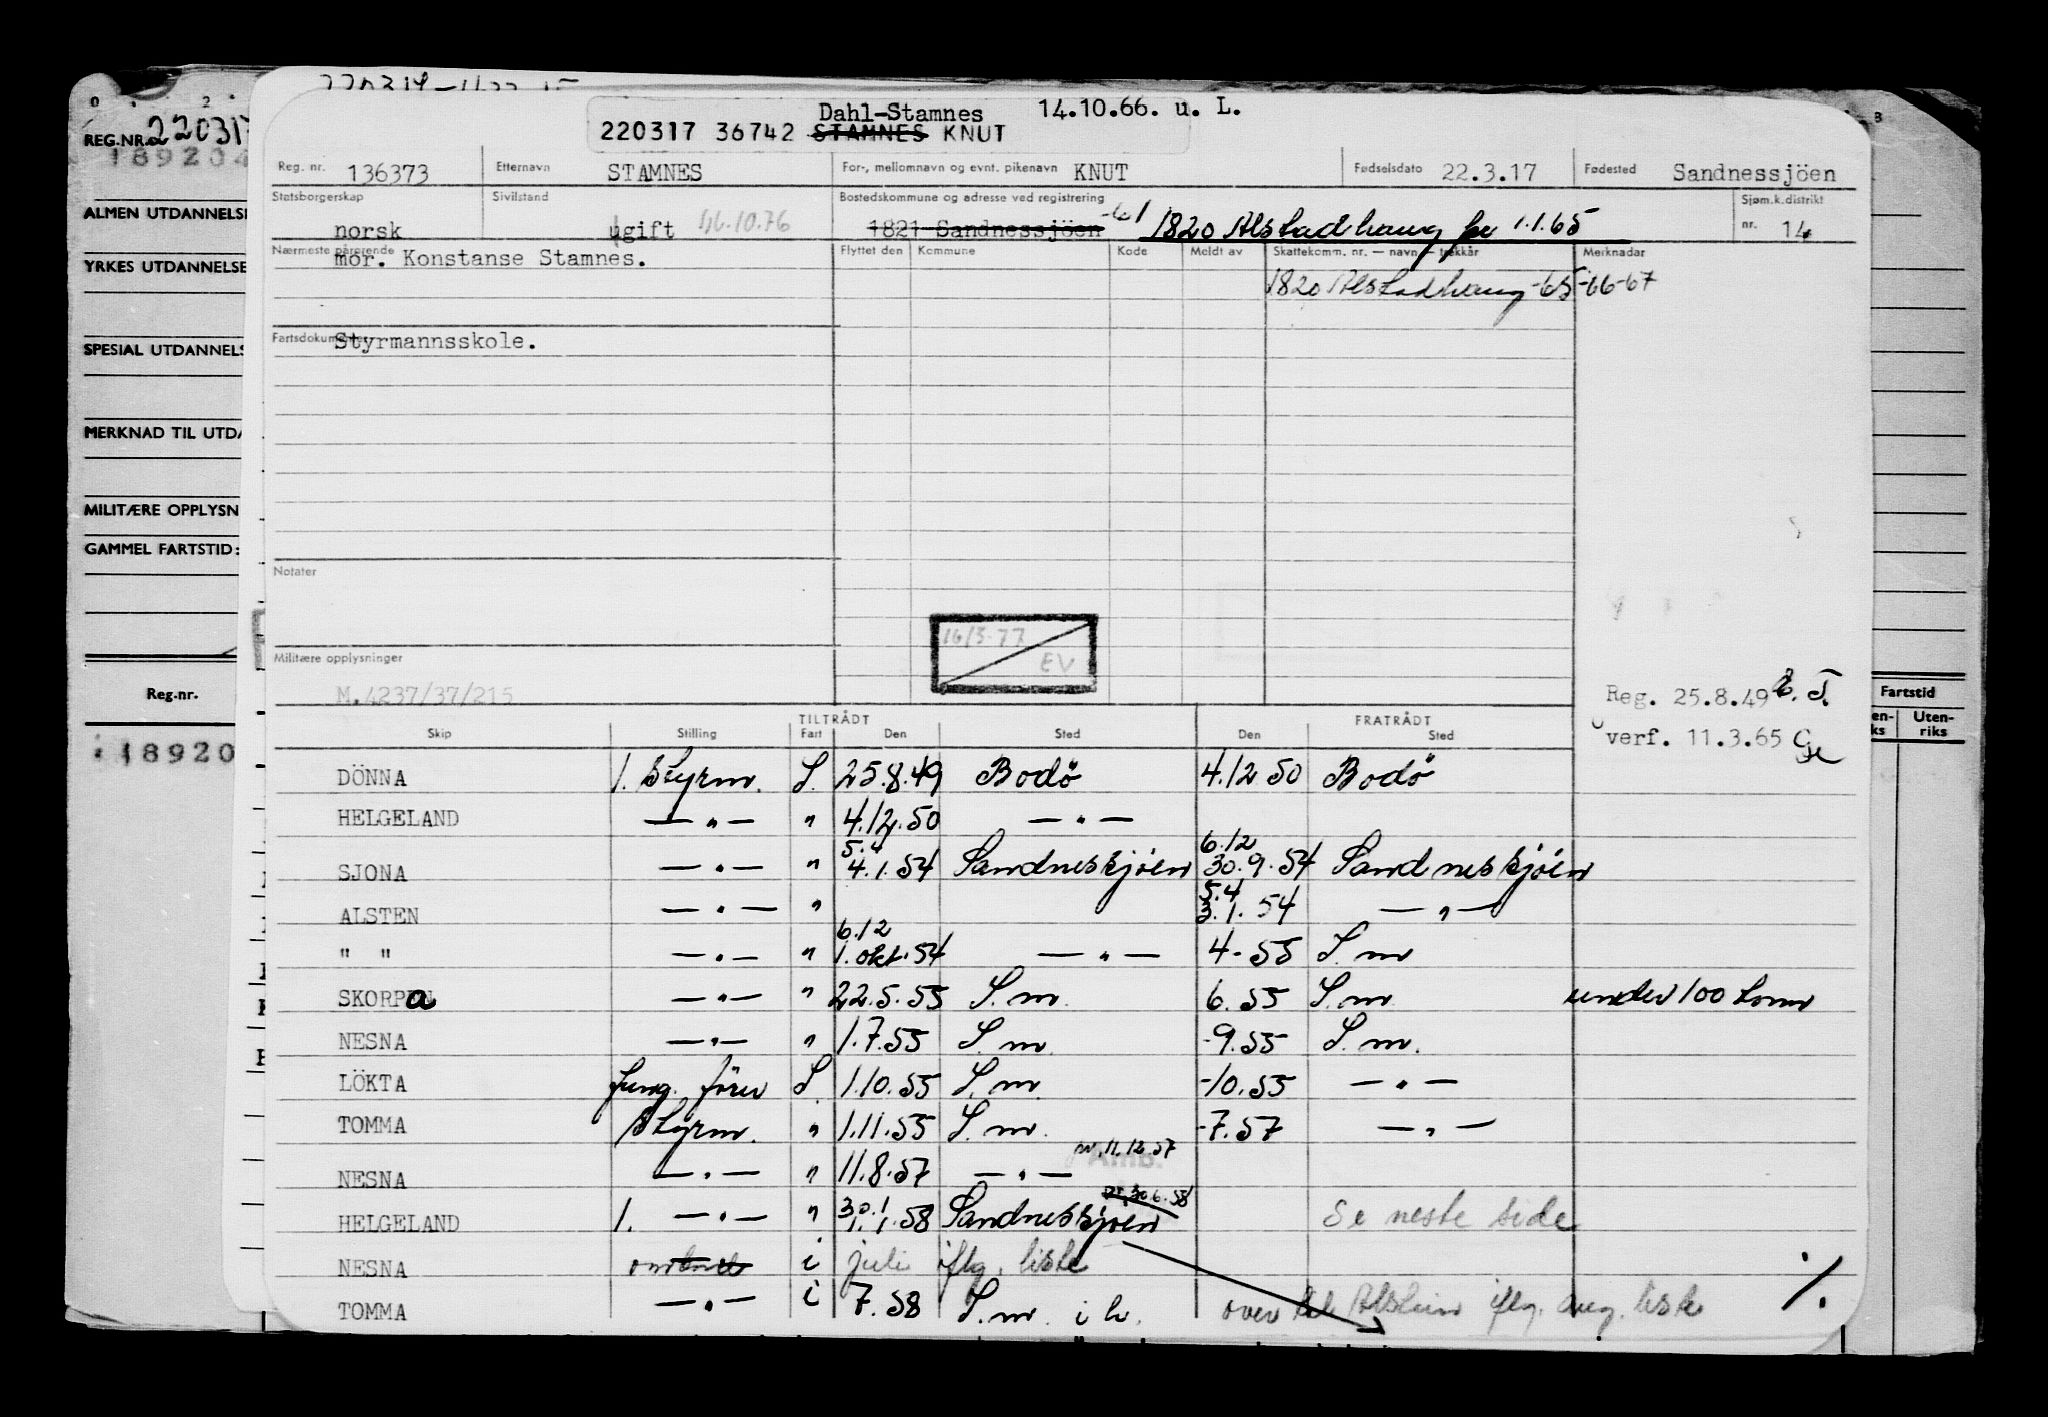 Dahl-Stamnes 14.10.66. u. L.
220317 36742 STAMNES KNUT
REG.NR. 220317
189204
Reg. nr. 136373 Etternavn STAMNES For-, mellomnavn og evnt. pikenavn KNUT Fødselsdato 22.3.17 Fødested Sandnessjöen
Statsborgerskap Sivilstand Bostedskommune og adresse ved registrering Sjøm.k.distrikt
norsk ugift 1821 Sandnessjöen 1820 Alstadhaug pr 1.1.65 nr. 14
Nærmeste pårørende Flyttet den Kommune Kode Meldt av Skattekomm. nr. — navn — trekkår Merknader
mor. Konstanse Stamnes.
1820 Alstadhaug -65-66-67
Fartsdokumenter
Styrmannsskole.
ALMEN UTDANNELSE
YRKES UTDANNELSE
SPESIAL UTDANNELS
MERKNAD TIL UTDA
MILITÆRE OPPLYSN
GAMMEL FARTSTID:
Notater
16/3-77
EV
Militære opplysninger
M.4237/37/215
Reg. 25.8.49
verf. 11.3.65
Reg.nr.
18920
Fartstid
en-
ks
Uten-
riks
TILTRÅDT FRATRÅDT
Skip Stilling Fart Den Sted Den Sted
DÖNNA 1. Styrm. S. 25.8.49 Bodö 4.12 50 Bodö
HELGELAND — " — " 4.12.50 — " —
5.4 6.12
SJONA — " — " 4.1.54 Sandneskjöen 30.9.54 Sandneskjöen
5.4
ALSTEN — " — " 3.1.54 — " —
6.12
" " — " — " 1.okt.54 — " — 4-55 S.m
SKORPA — " — " 22.5.55 S.m. 6.55 S.m. under 100 tonn
NESNA — " — " 1.7.55 S.m. -9.55 S.m.
LÖKTA fung. förer S. 1.10.55 S.m. -10.55 — " —
TOMMA Styrm. " 1.11.55 S.m. -7.57 — " —
NESNA — " — " 11.8.57 — " — 11.12.57
HELGELAND 1. — " — " 30.1 1.1.58 Sandneskjöen 30.6.58 Se neste side
NESNA i juli iflg. liste
TOMMA — " — i 7.58 S.m. i h. over til Alstein iflg. aug. liste
%